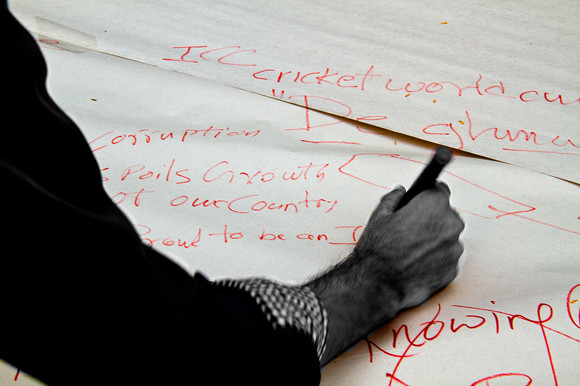 ICC
cricket world cu
"De ghuma
Corruption
sPoils Growth
of our Country
Proud to be an I
Knowing